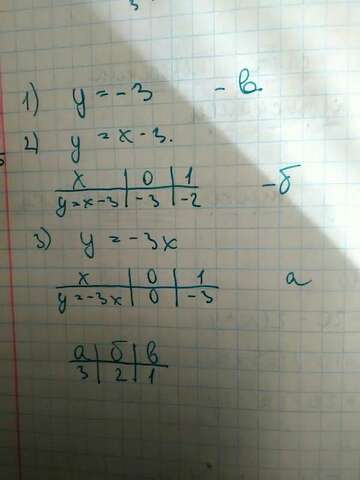 1) y = -3 - в
2) y = x - 3.
x 0 1
y = x - 3 -3 -2 - б
3) y = -3x
x 0 1 а
y = -3x 0 -3
а б в
3 2 1